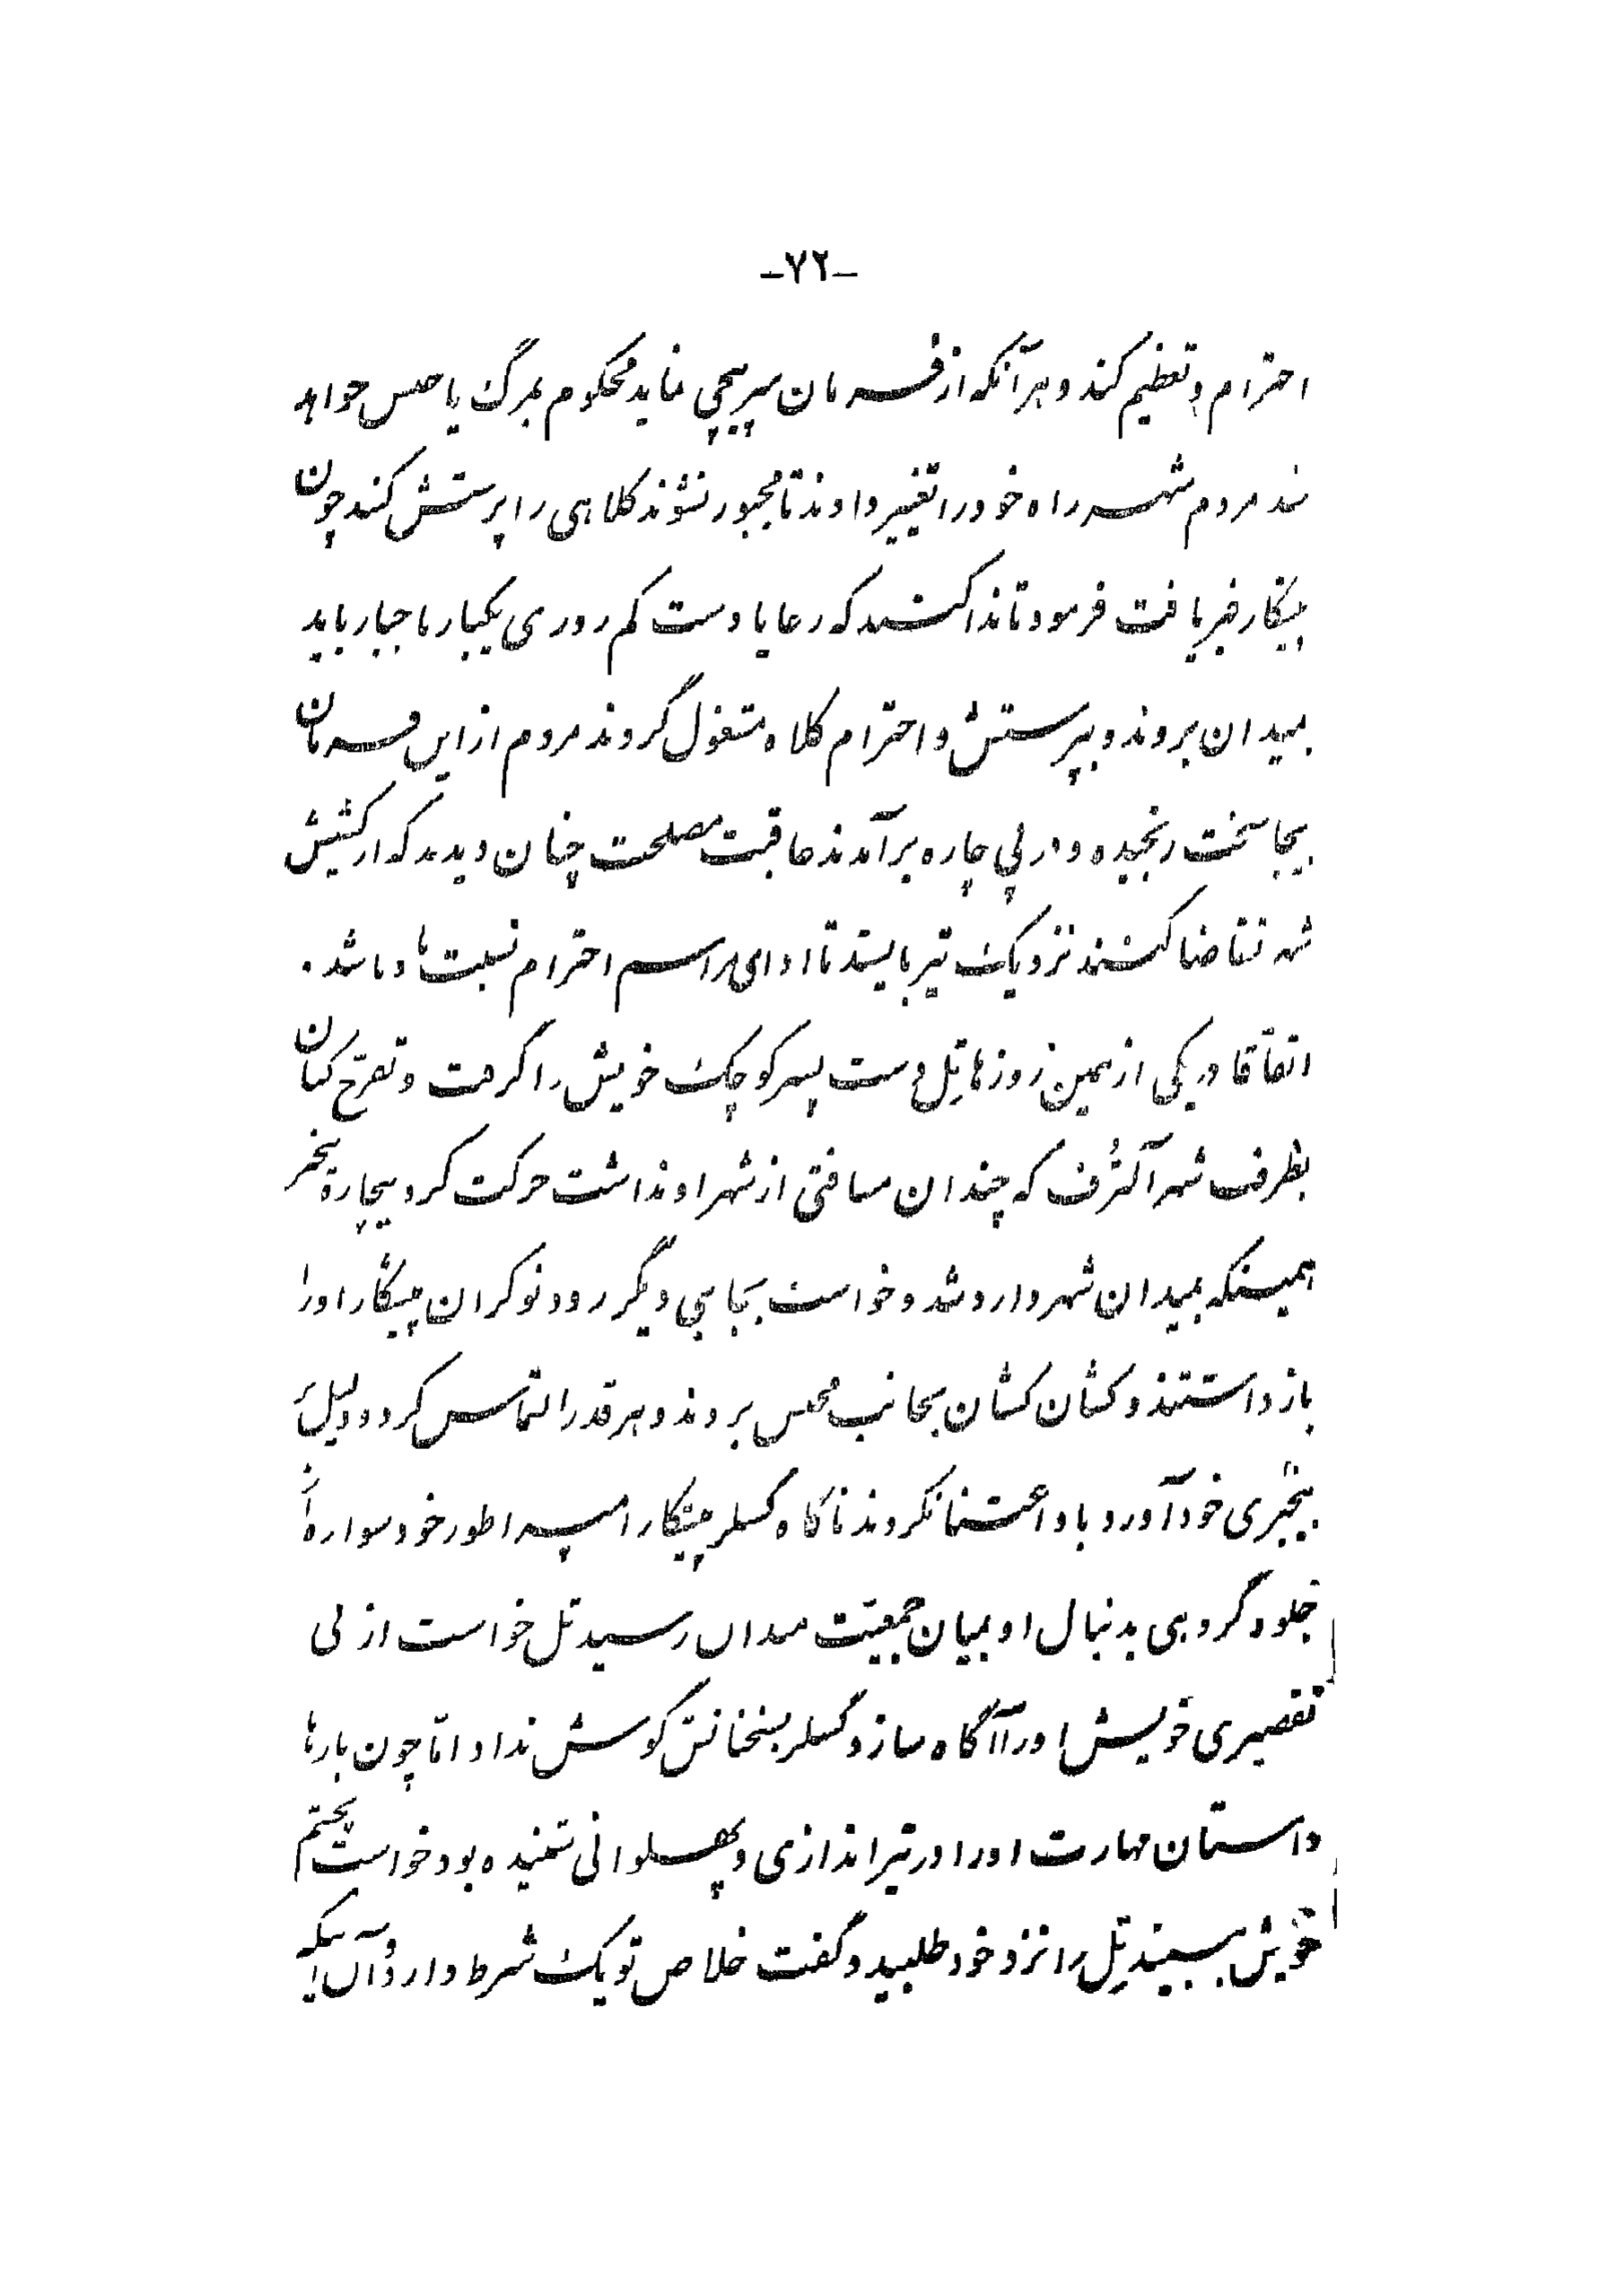 -۷۲-
احترام و تعظیم کند و هر آنکه از فرمان سرپیچی نماید محکوم بمرگ یا حبس خواهد
شد مردم شهر راه خود را تغییر دادند تا مجبور نشوند کلاهی را پرستش کنند چون
پیشکار خبر یافت فرمود تا ندا کنند که رعایا دست کم روزی یکبار باجبار باید
بمیدان بروند و بپرستش و احترام کلاه مشغول گردند مردم از این فرمان
بیجا سخت رنجیده و در پی چاره برآمدند عاقبت مصلحت چنان دیدند که از کشیش
شهر تقاضا کنند نزدیک تیر بایستد تا ادای مراسم احترام نسبت باو باشد .
اتفاقا در یکی از همین روزها تِل دست پسر کوچک خویش را گرفت و تفرّج کنان
بطرف شهر آلتُرف که چندان مسافتی از شهر او نداشت حرکت کرد بیچاره بیخبر
همینکه بمیدان شهر وارد شد و خواست بجایی دیگر رود نوکران پیشکار او را
بازداشتند و کشان کشان بجانب محبس بردند و هر قدر التماس کرد و دلیل
بیخبری خود آورد باو اعتنا نکردند ناگاه گسلر پیشکار امپراطور خود سواره از
جلو و گروهی بدنبال او بمیان جمعیّت میدان رسید تل خواست از بی
تقصیری خویش او را آگاه سازد گسلر بسخنانش گوش نداد امّا چون بارها
داستان مهارت او را در تیراندازی و پهلوانی شنیده بود خواست بچشم
خویش ببیند تِل را نزد خود طلبید و گفت خلاص تو یک شرط دارد و آن اینکه